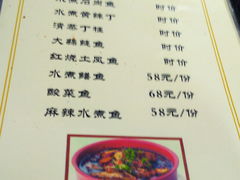 水煮 鱼 时价
水煮黄辣丁 时价
清蒸丁桂 时价
大蒜鲢鱼 时价
红烧土凤鱼 时价
水煮鳝鱼 58元/份
酸菜鱼 68元/份
麻辣水煮鱼 58元/份